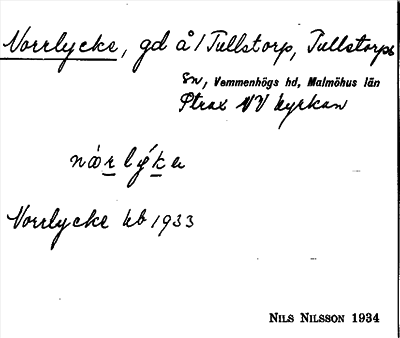 Norrlycke, gd å/Tullstorp, Tullstorps
sn, Vemmenhögs hd, Malmöhus län
Strax NV kyrkan
Norrlycke kb 1933
NILS NILSSON 1934